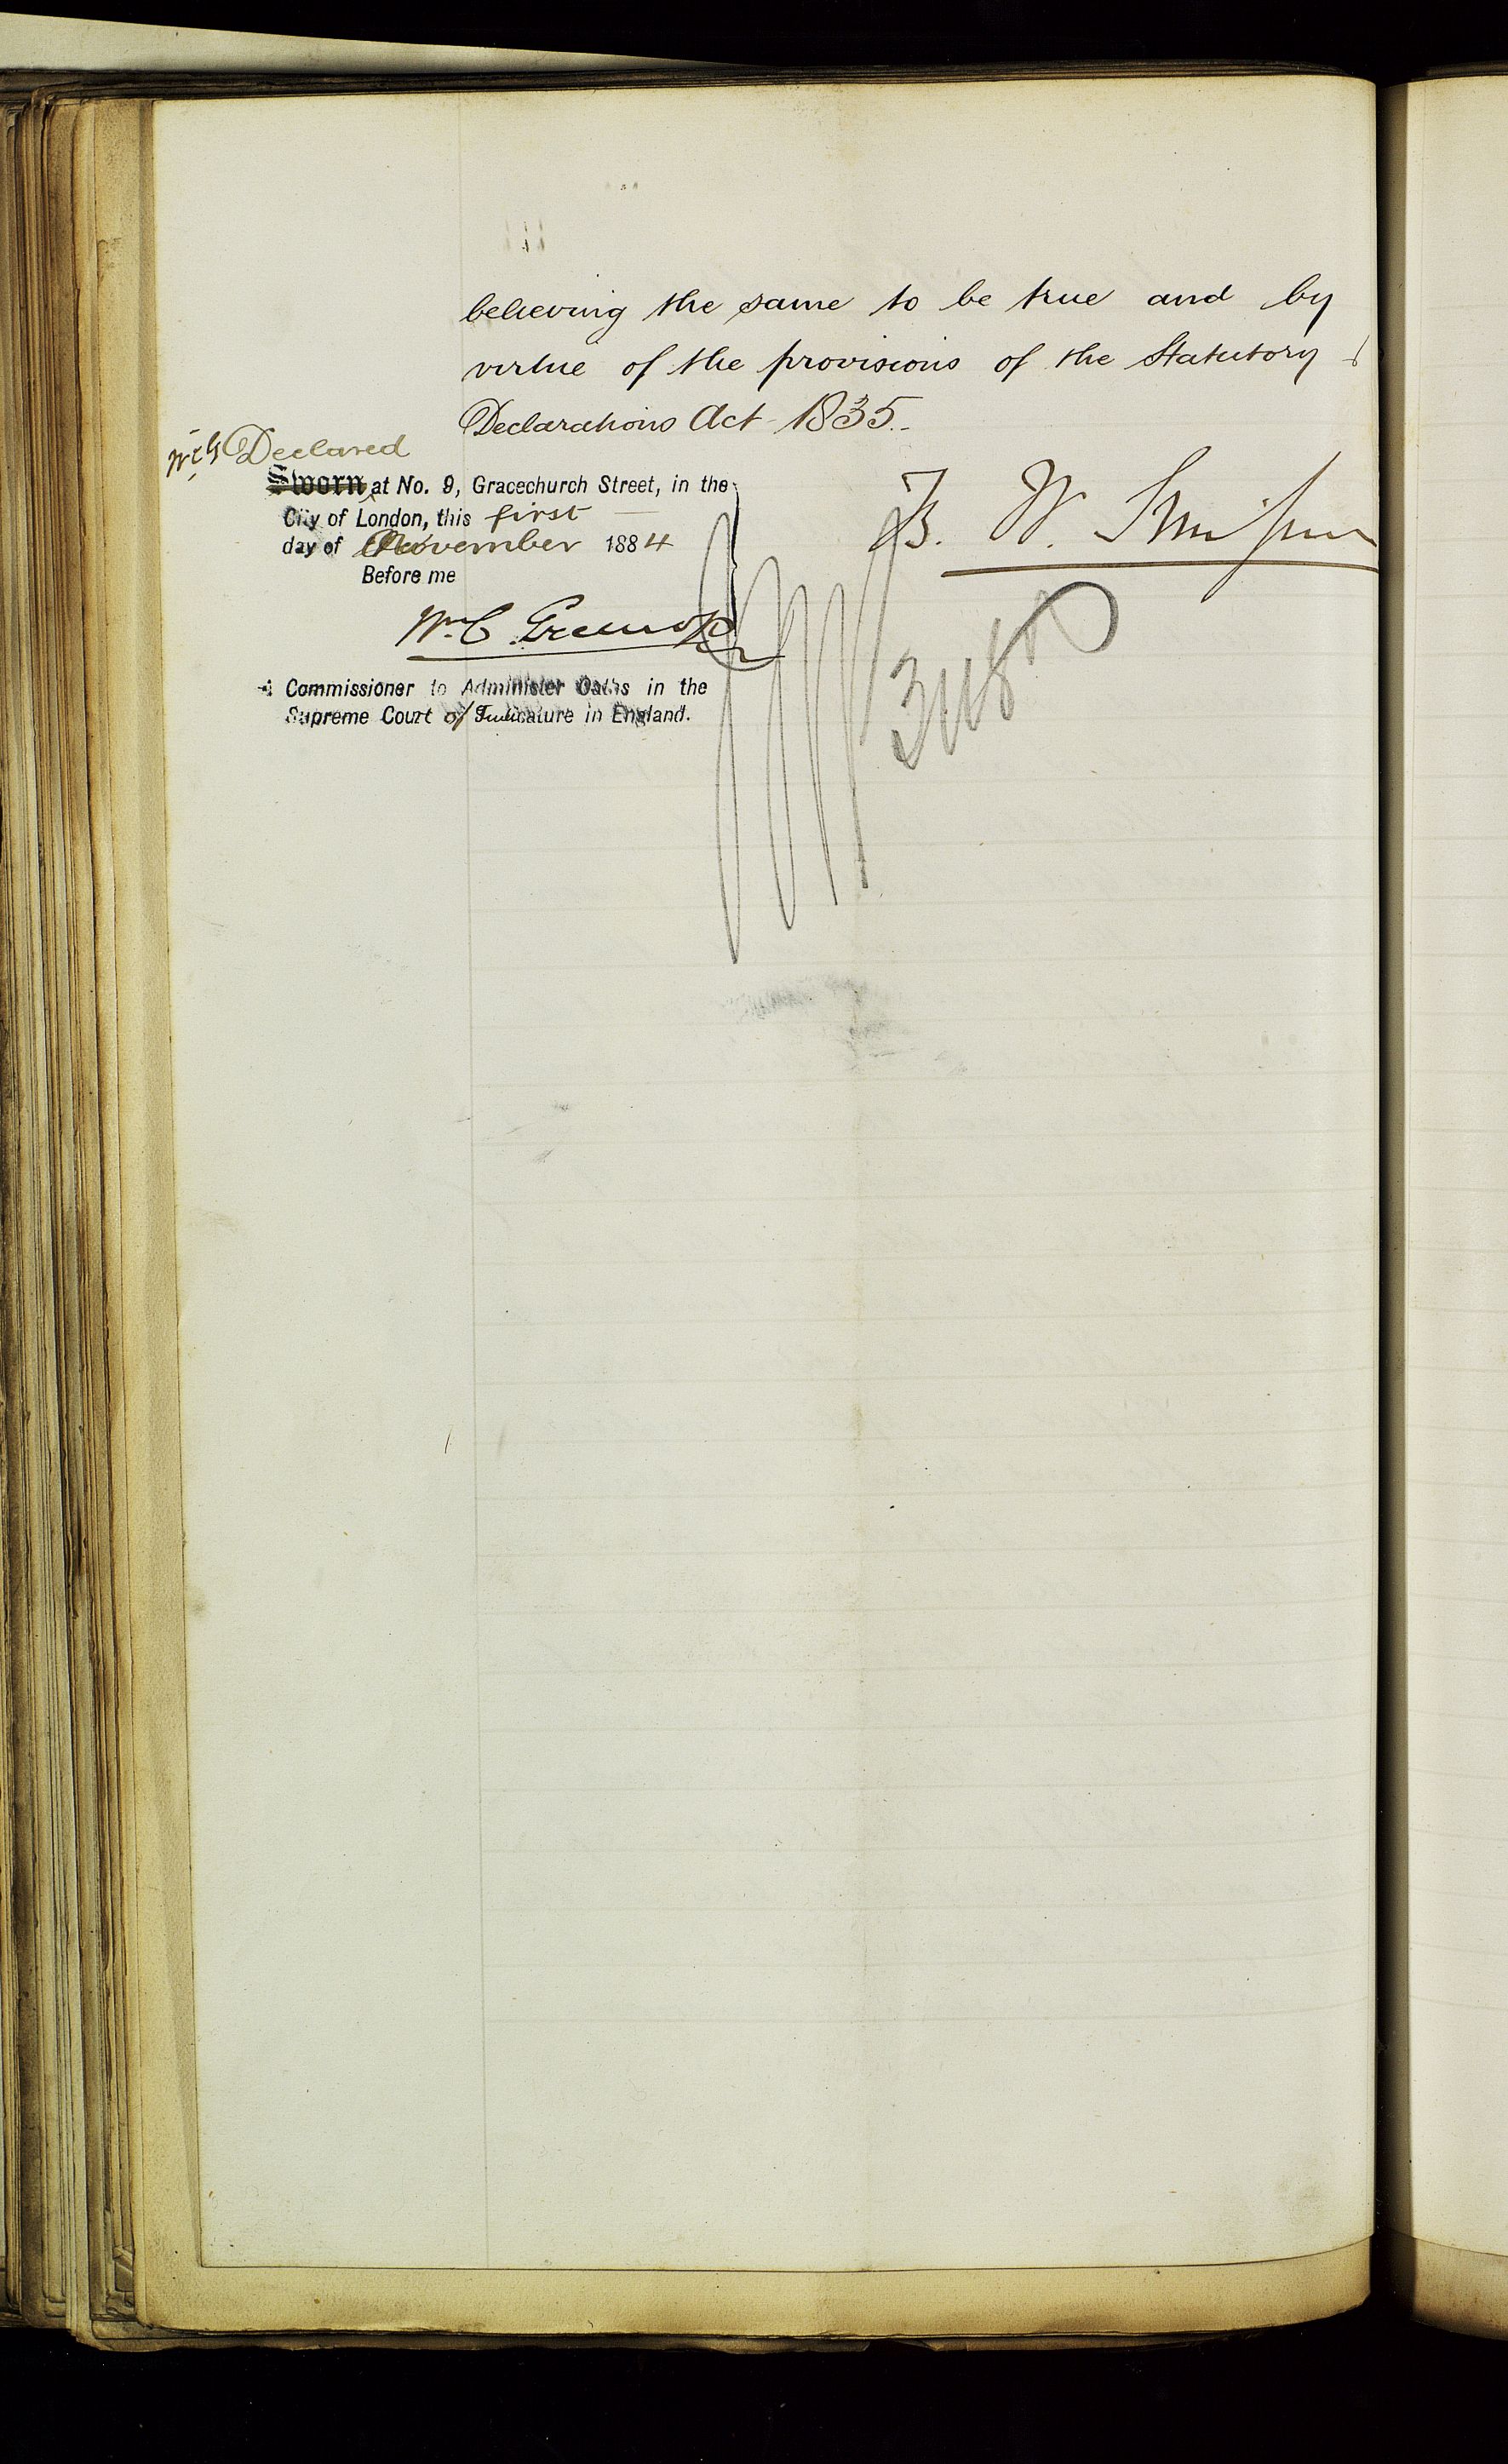 believing the same to be true and by
virtue of the provisions of the Statutory
Declarations Act 1835.
W.C.G. Declared
Sworn at No. 9, Gracechurch Street, in the
City of London, this first
day of November 1884
Before me
Wm C
Commissioner to Administer Oaths in the
Supreme Court of Judicature in England.
B. W.